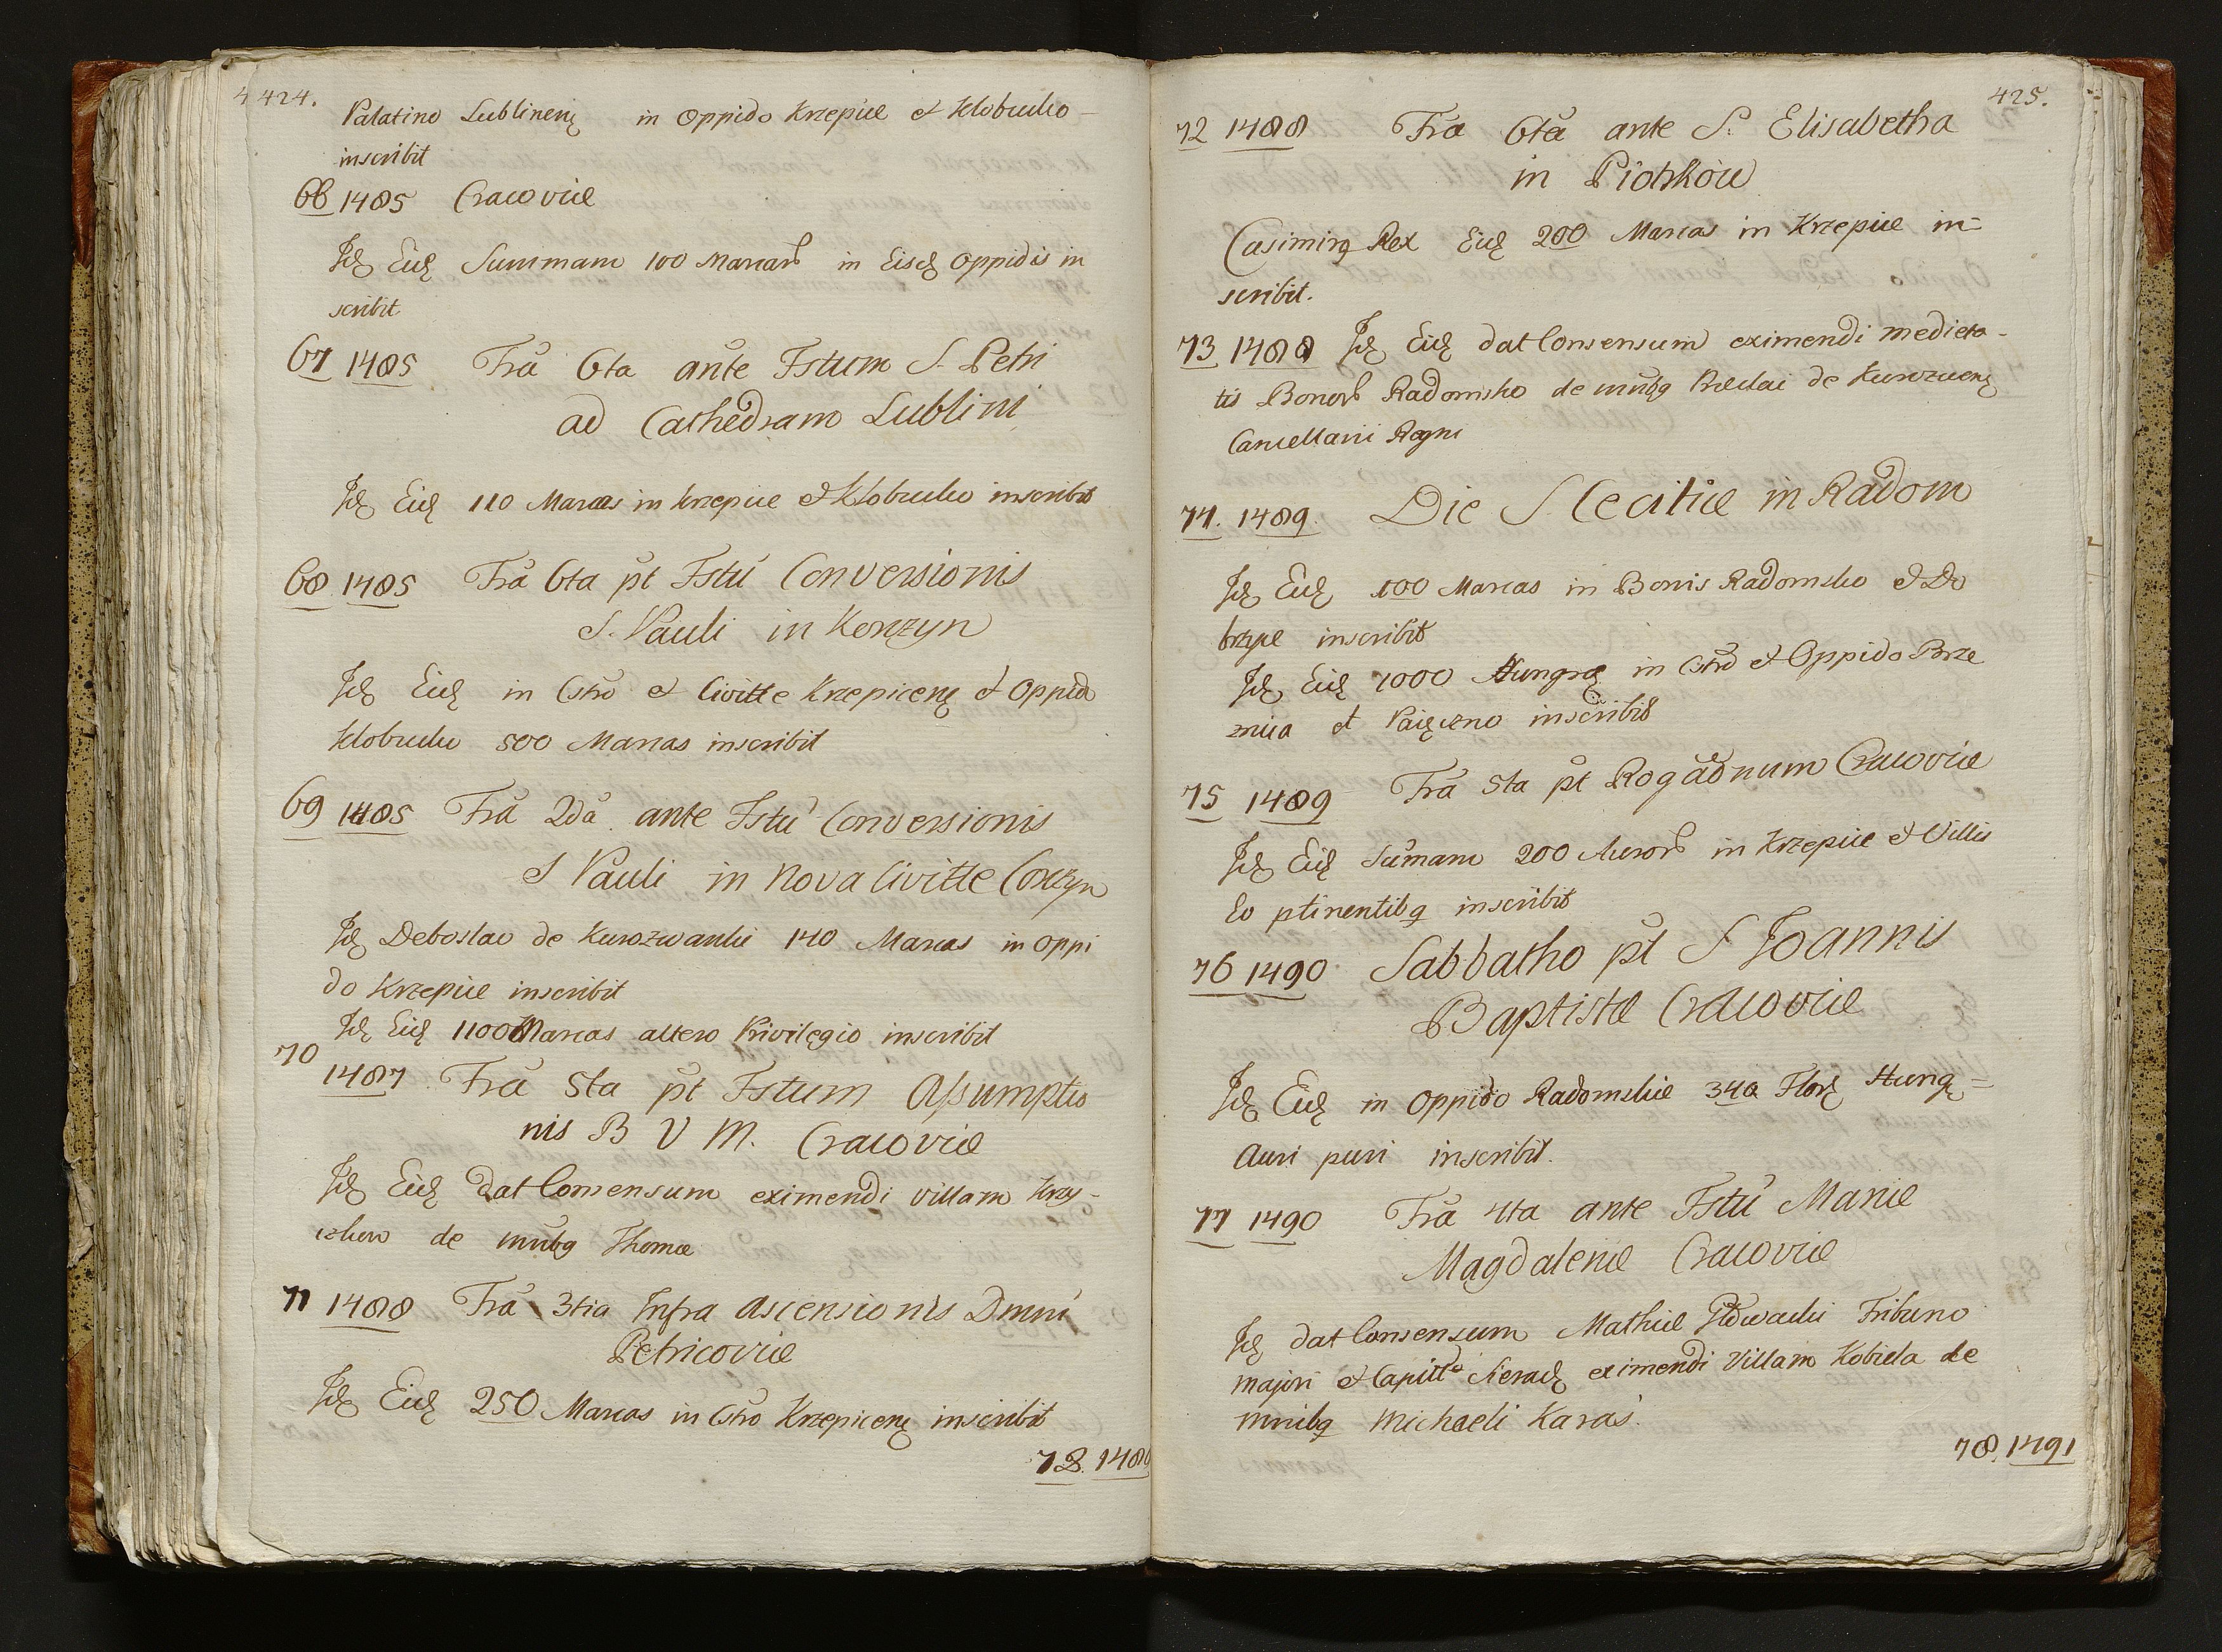 424.
Palatino Lublinenẛ in Oppido Krzepice et Klobucko -
inscribit
66 1485 Cracoviæ
Idē Eidē Summam 100 Marcarū in Eisdē Oppidis in
scribit
67 1485 Fra 6ta ante Fstum S. Petri
ad Cathedram Lublini
Idē Eidē 110 Marcas in Krzepice et Klobucko inscribit
68 1485 Fra 6ta pt Fstu Conversionis
S. Pauli in Korczyn
Idē Eidē in Cstro et Civitte Krzepicenẛ et Oppido
Klobucku 500 Marcas inscribit
69 1485 Fra 2da ante Fstu Conversionis
S Pauli in Nova Civitte Corczyn
Idē Deboslao de Kurozwanki 140 Marcas in Oppi
do Krzepice inscribit
Idē Eidē 1100 Marcas altero Privilegio inscribit
70
1487 Fra 5ta pt Fstum Assumptio
nis B V M. Cracoviæ
Idē Eidē dat Consensum eximendi villam Krzy-
de mnibq Thomæ
71 1488 Fra 3tia Infra Ascensionis Dmni
Petricoviæ
Idē Eidē 250 Marcas in Cstro Krzepicenẛ inscribit
72. 1488
425.
72 1488 Fra 6ta ante S. Elisabetha
in Piotrkow
Casimirq Rex Eidē 200 Marcas in Krzepice in=
scribit.
73 1488 Idē Eidē dat Consensum eximendi medieta-
tis Bonorū Radomsko de mnibq de Kurozwenẛ
Cancellarii Regni
74. 1489. Die S Ceciliæ in Radom
Idē Eidē 100 Marcas in Bonis Radomsko et Do
brzyce inscribit
Idē Eidē 1000 Hungrẛ in Cstro et Oppido Brze
znica et Paięczno inscribit
75 1489 Fra 5ta pt Rogaonum Cracoviæ
Idē Eidē Sumam 200 Aureorū in Krzepice et Villis
Eo ptinentibq inscribit
76 1490 Sabbatho pt S Joannis
Baptistæ Cracoviæ
Idē Eidē in Oppido Radomskie 340 Florẛ Hungẛ=
Auri puri inscribit.
77 1490 Fra 4ta ante Fstu Mariæ
Magdalenæ Cracoviæ
Idē dat Consensum Mathiæ Tribuno
majori et Capitto Sieradẛ eximendi Villam Kobiela de
mnibq Michaeli Karaś.
78. 1491